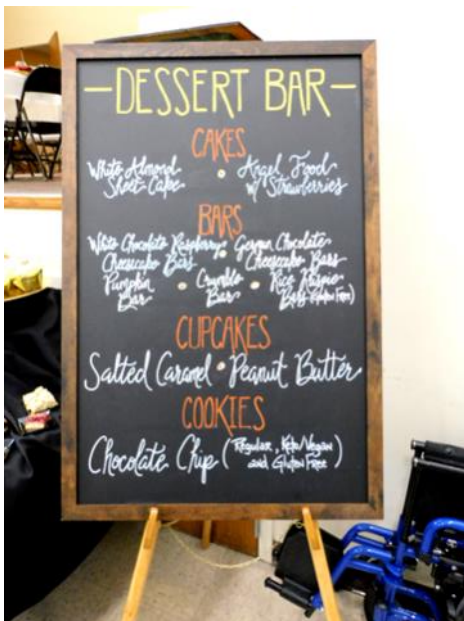 -DESSERT BAR-
CAKES
White Almond Sheet Cake • Angel Food w/ Strawberries
BARS
White Chocolate Raspberry Cheesecake Bars • German Chocolate Cheesecake Bars
Pumpkin Bar • Crumble Bar • Rice Krispie Bars (Gluten Free)
CUPCAKES
Salted Caramel • Peanut Butter
COOKIES
Chocolate Chip (Regular, Keto/Vegan and Gluten Free)